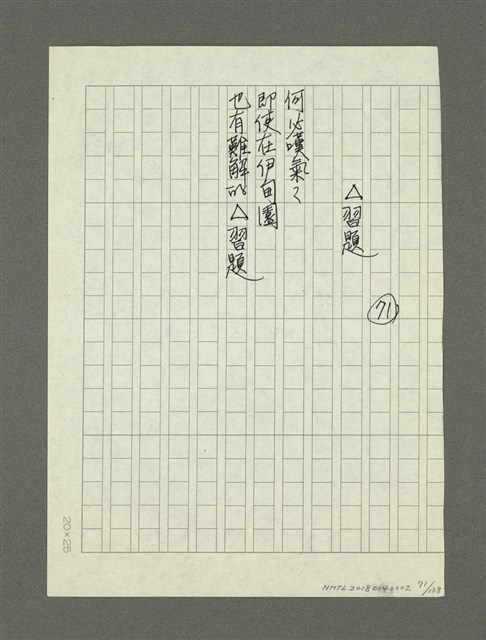 △習題
71
何必嘆氣
即使在伊甸園
也有難解的△習題
20×25
NMTL 2018 014 0002 71/138